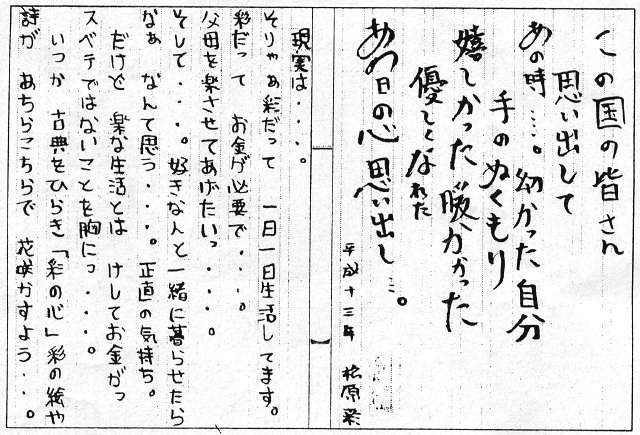 この国の皆さん
思い出して
あの時…。幼かった自分
手のぬくもり
嬉しかった暖かかった
優しくなれた
あの日の心思い出し…。
平成十三年 松原彩
現実は・・・。
そりゃあ彩だって 一日一日生活してます。
彩だって お金が必要で・・・。
父母を楽させてあげたいっ・・・。
そして・・・。好きな人と一緒に暮らせたら
なぁ なんて思う・・・。正直の気持ち。
だけど 楽な生活とは けしてお金がっ
スベテではないことを胸にっ・・・。
いつか 古典をひらき「彩の心」彩の絵や
詩が あちらこちらで 花咲かすよう・・・。